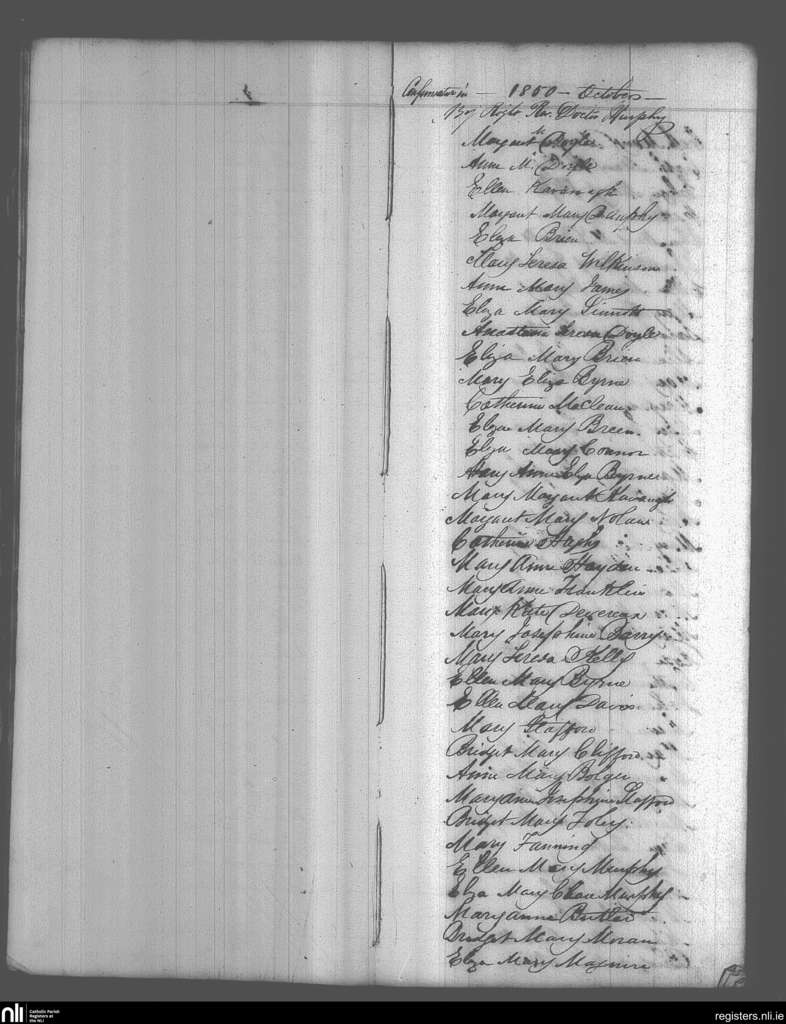 Confirmation in — 1850 — October —
By Right Rev. Doctor Murphy
Margaret
Anne M. Doyle
Ellen Kavanagh
Margaret Mary Dunphy
Eliza Brien
Mary Teresa Wilkinson
Anne Mary James
Eliza Mary Sinnott
Anastasia Teresa Doyle
Eliza Mary Brien
Mary Eliza Byrne
Catherine
Eliza Mary Breen
Eliza Mary Connor
Mary Anne Eliza Byrne
Mary Margaret Kavanagh
Margaret Mary Nolan
Catherine
Mary Anne Hayden
Mary Anne Franklin
Mary Devereux
Mary Josephine Barry
Mary Teresa Kelly
Ellen Mary Byrne
Ellen Mary Davis
Mary Stafford
Bridget Mary Clifford
Anne Mary Bolger
Maryanne Josephine Stafford
Bridget Mary Foley
Mary Fanning
Ellen Mary Murphy
Eliza Mary Clare Murphy
Maryanne Butler
Bridget Mary Moran
Eliza Mary Maguire
nli
Catholic Parish
Registers at
the NLI
registers.nli.ie